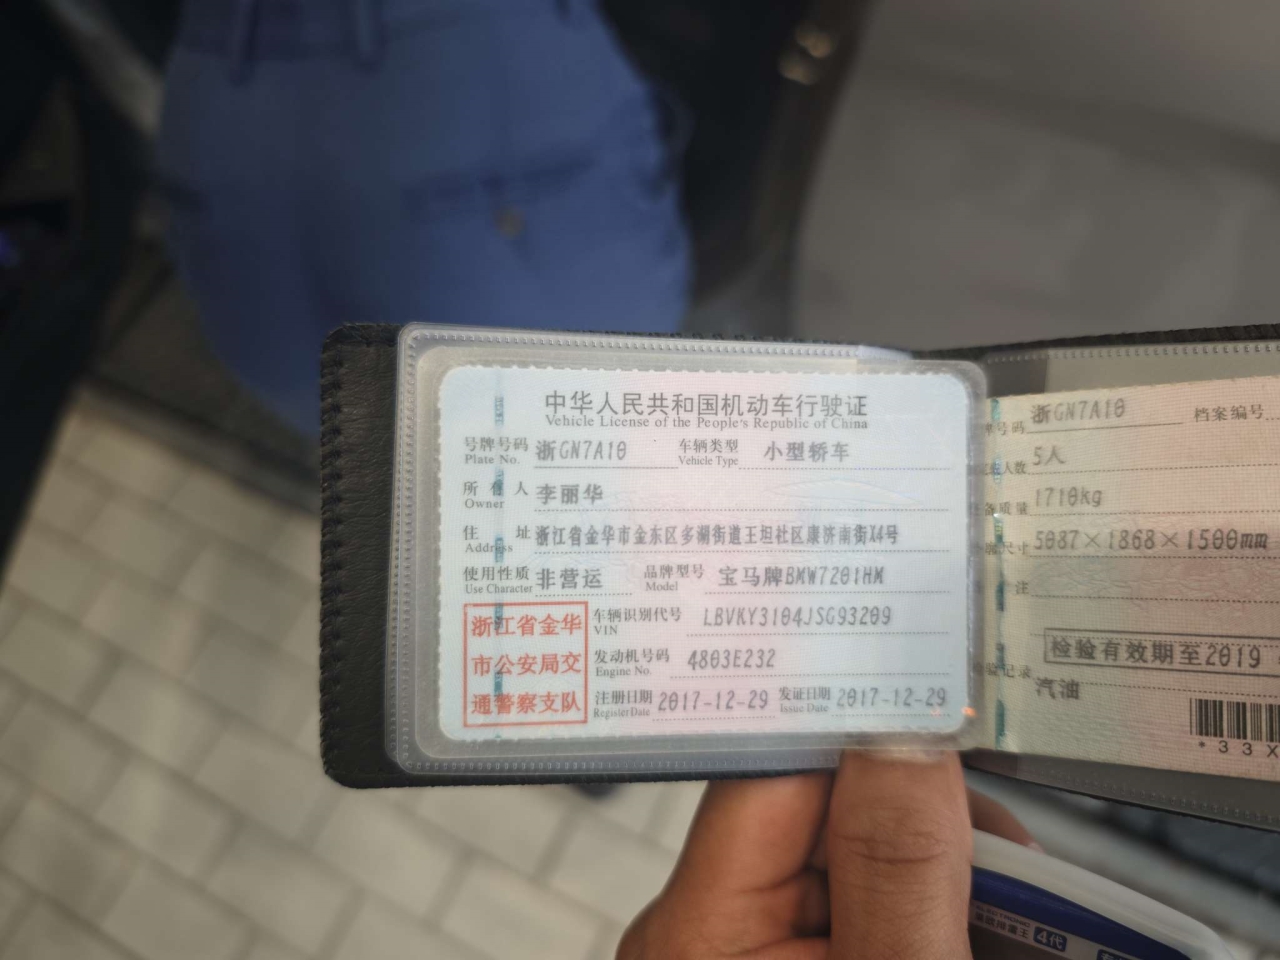 中华人民共和国机动车行驶证
Vehicle License of the People's Republic of China
号牌号码 浙GN7A10 车辆类型 小型轿车
Plate No. Vehicle Type
所有人 李丽华
Owner
住址 浙江省金华市金东区多湖街道王坦社区康济南街X4号
Address
使用性质 非营运 品牌型号 宝马牌BMW7201HM
Use Character Model
浙江省金华
市公安局交
通警察支队
车辆识别代号 LBVKY3104JSG93209
VIN
发动机号码 4803E232
Engine No.
注册日期 2017-12-29 发证日期 2017-12-29
Register Date Issue Date
牌号码 浙GN7A10 档案编号
人数 5人
备质量 1710kg
尺寸 5087×1868×1500mm
注
检验有效期至2019
记录 汽油
*33X
4代